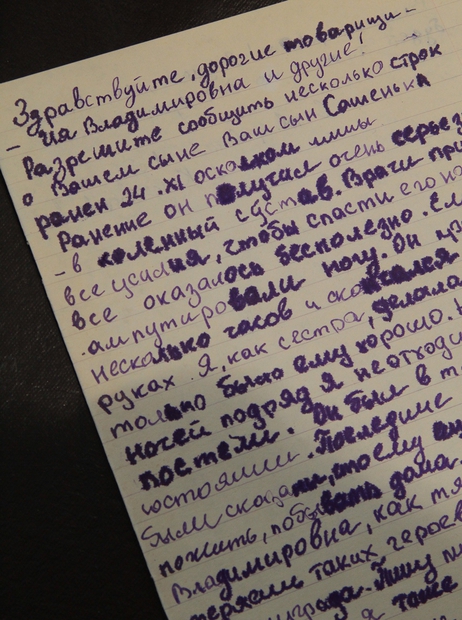 Здравствуйте, дорогие товарищи -
- Ия Владимировна и другие,
Разрешите сообщить несколько строк
о Вашем сыне Ваш сын Сашенька
ранен 24.XI осколком мины
Ранение он получил очень серьез
- в коленный сустав. Врачи при
все усилия, чтобы спасти его но
все оказалось бесполезно. Ем
ампутировали ногу. Он
несколько часов и скончался
руках. Я, как сестра, делала
только было ему хорошо.
ночей подряд я не отходи
постели. Он был в т
состоянии. Последние
были сказаны, что ему
пожить, побывать дома.
Владимировна, как тя
теряем таких героев
награда. Пишу пи
я тоже